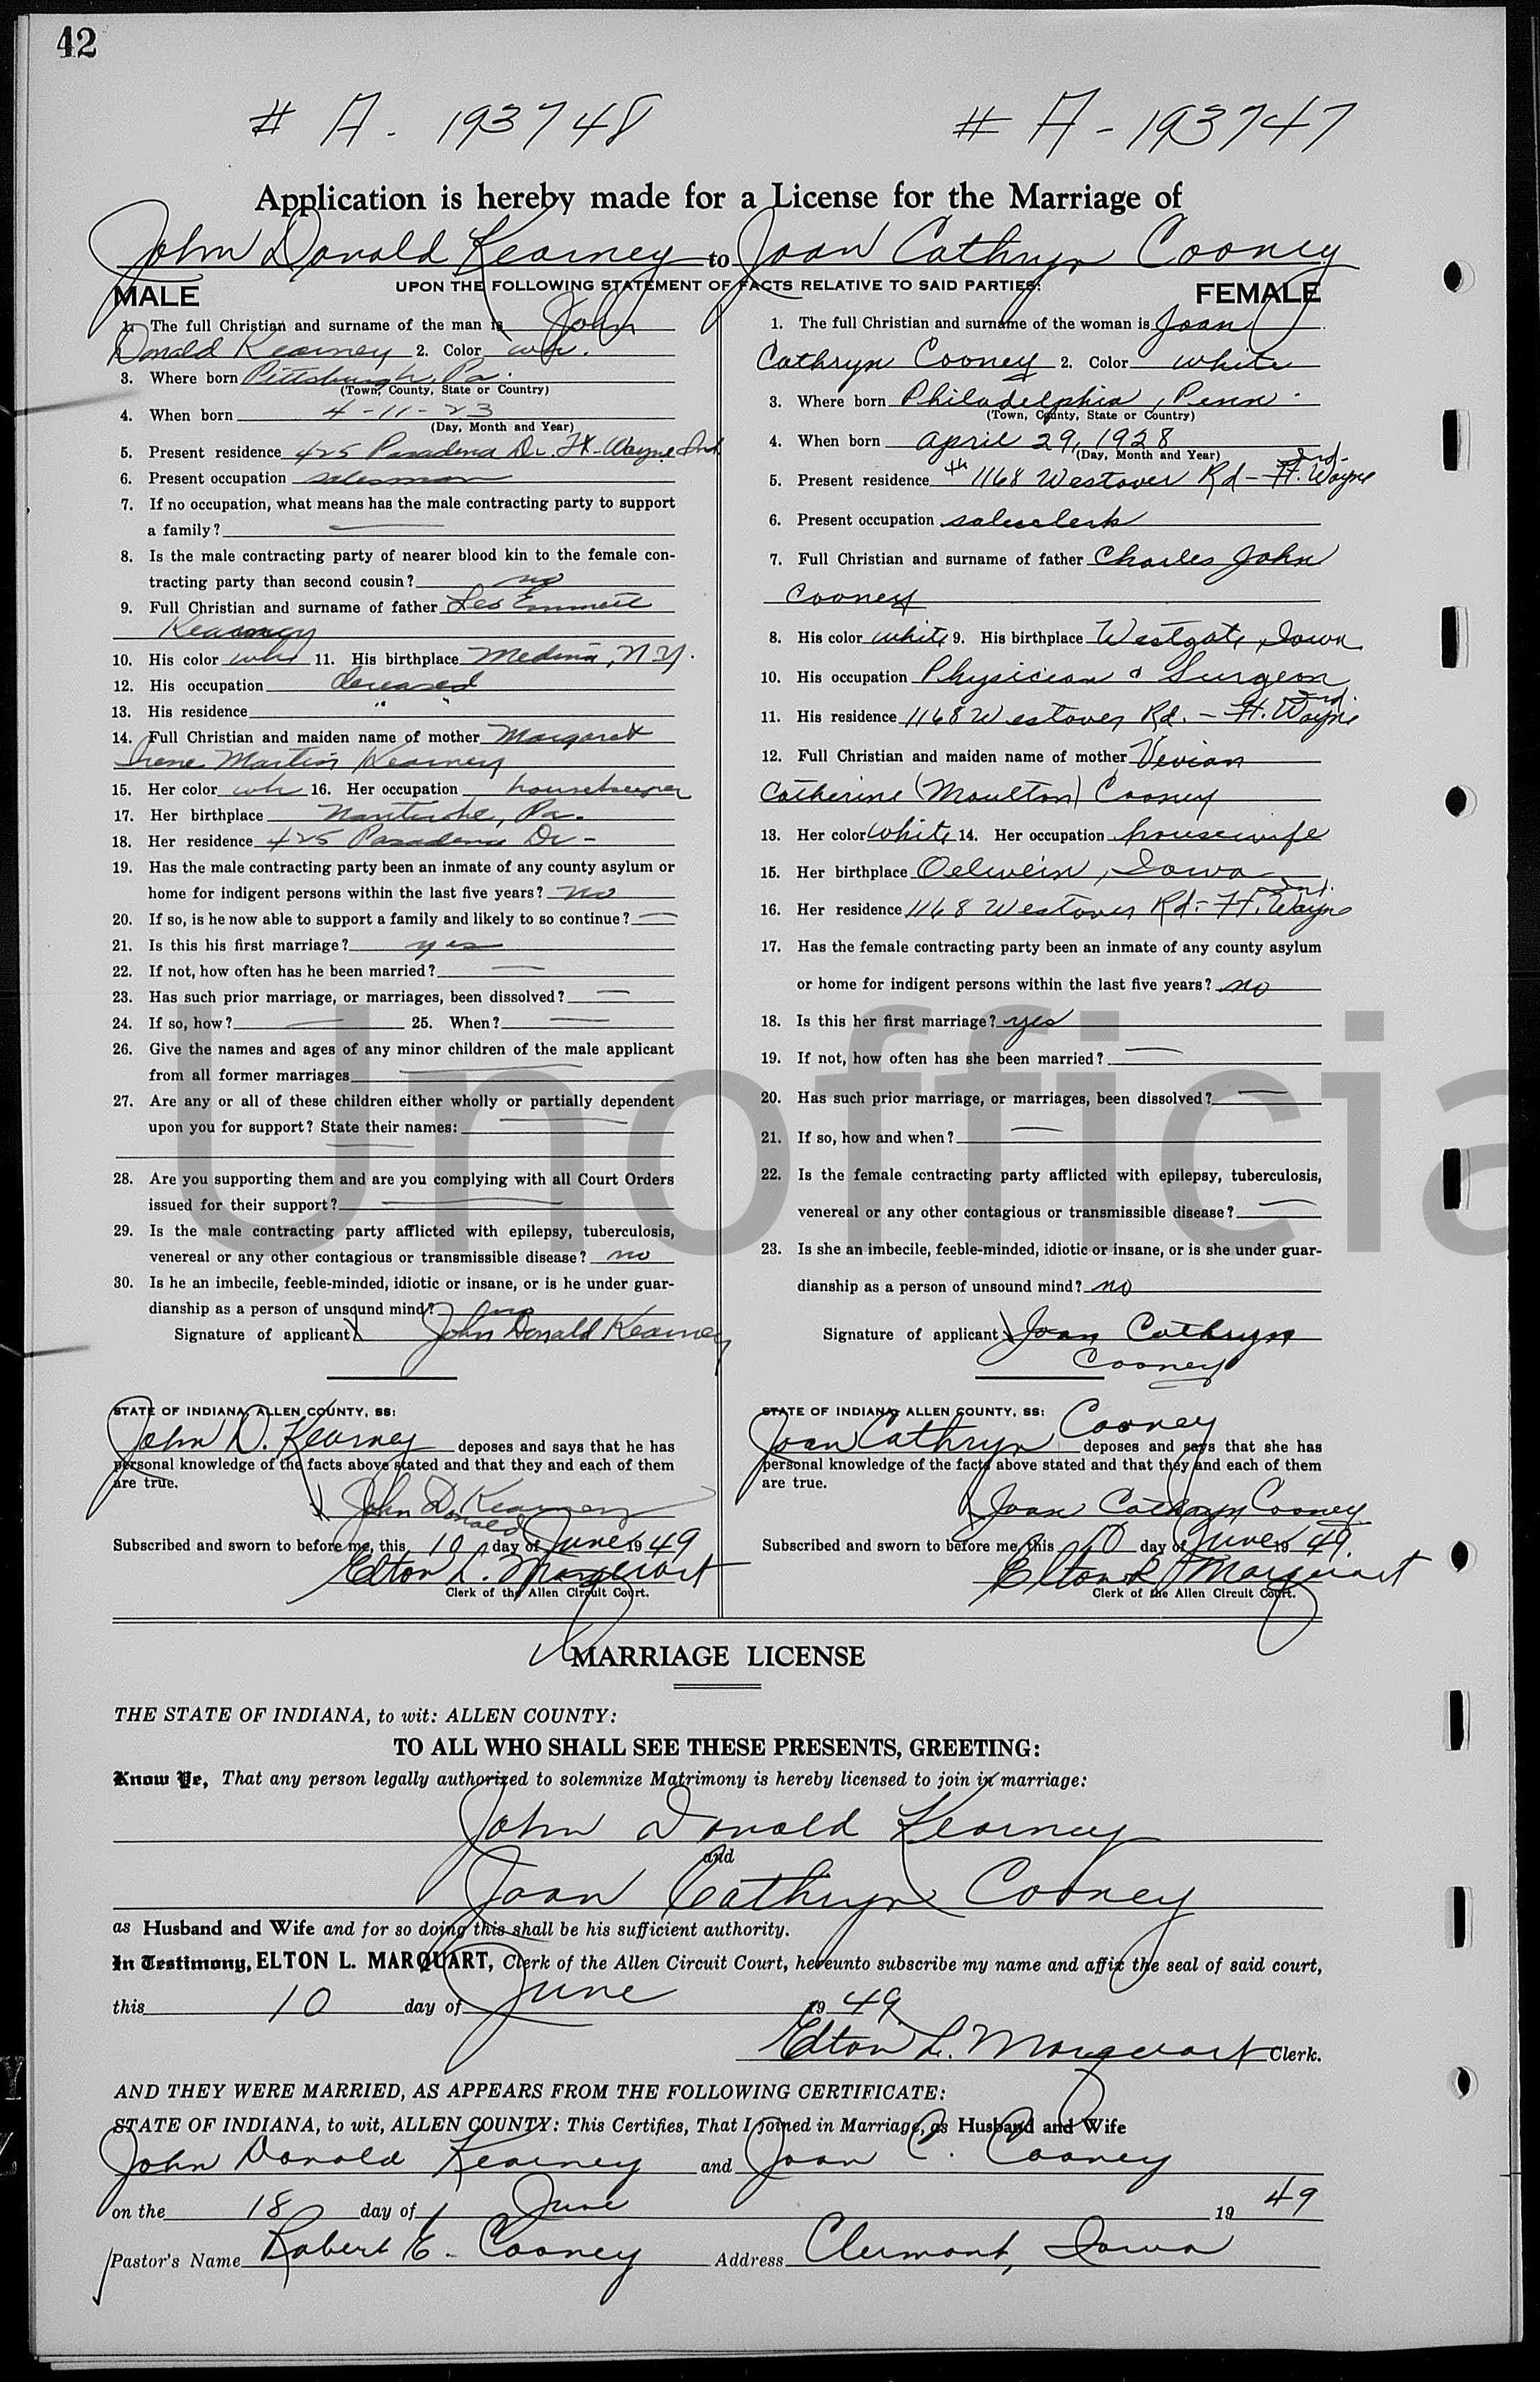 42
# A - 193748
# A - 193747
Application is hereby made for a License for the Marriage of
John Donald Kearney to Joan Cathryn Cooney
UPON THE FOLLOWING STATEMENT OF FACTS RELATIVE TO SAID PARTIES:
MALE
1. The full Christian and surname of the man is John
Donald Kearney 2. Color wh.
3. Where born Pittsburgh, Pa.
(Town, County, State or Country)
4. When born 4-11-23
(Day, Month and Year)
5. Present residence 425 Pasadena Dr. Ft. Wayne Ind.
6. Present occupation salesman
7. If no occupation, what means has the male contracting party to support
a family?
8. Is the male contracting party of nearer blood kin to the female con-
tracting party than second cousin? no
9. Full Christian and surname of father Leo Emmett
Kearney
10. His color wh 11. His birthplace Medina, N.Y.
12. His occupation deceased
13. His residence " "
14. Full Christian and maiden name of mother Margaret
Irene Martin Kearney
15. Her color wh 16. Her occupation housekeeper
17. Her birthplace Pa.
18. Her residence 425 Pasadena Dr -
19. Has the male contracting party been an inmate of any county asylum or
home for indigent persons within the last five years? no
20. If so, is he now able to support a family and likely to so continue? —
21. Is this his first marriage? yes
22. If not, how often has he been married? —
23. Has such prior marriage, or marriages, been dissolved? —
24. If so, how? — 25. When? —
26. Give the names and ages of any minor children of the male applicant
from all former marriages —
27. Are any or all of these children either wholly or partially dependent
upon you for support? State their names: —
28. Are you supporting them and are you complying with all Court Orders
issued for their support? —
29. Is the male contracting party afflicted with epilepsy, tuberculosis,
venereal or any other contagious or transmissible disease? no
30. Is he an imbecile, feeble-minded, idiotic or insane, or is he under guar-
dianship as a person of unsound mind? no
Signature of applicant John Donald Kearney
STATE OF INDIANA, ALLEN COUNTY, SS:
John D. Kearney deposes and says that he has
personal knowledge of the facts above stated and that they and each of them
are true.
John D Kearney
Donald
Subscribed and sworn to before me, this 10 day of June 1949
Elton L. Marquart
Clerk of the Allen Circuit Court.
FEMALE
1. The full Christian and surname of the woman is Joan
Cathryn Cooney 2. Color white
3. Where born Philadelphia, Penn.
(Town, County, State or Country)
4. When born April 29, 1928
(Day, Month and Year)
5. Present residence 1168 Westover Rd - Ft. Wayne Ind.
6. Present occupation salesclerk
7. Full Christian and surname of father Charles John
Cooney
8. His color white 9. His birthplace Westgate, Iowa
10. His occupation Physician & Surgeon
11. His residence 1168 Westover Rd. - Ft. Wayne Ind.
12. Full Christian and maiden name of mother Vivian
Catherine (Moulton) Cooney
13. Her color white 14. Her occupation housewife
15. Her birthplace Oelwein, Iowa
16. Her residence 1168 Westover Rd. - Ft. Wayne Ind.
17. Has the female contracting party been an inmate of any county asylum
or home for indigent persons within the last five years? no
18. Is this her first marriage? yes
19. If not, how often has she been married? —
20. Has such prior marriage, or marriages, been dissolved? —
21. If so, how and when? —
22. Is the female contracting party afflicted with epilepsy, tuberculosis,
venereal or any other contagious or transmissible disease? —
23. Is she an imbecile, feeble-minded, idiotic or insane, or is she under guar-
dianship as a person of unsound mind? no
Signature of applicant Joan Cathryn
Cooney
STATE OF INDIANA, ALLEN COUNTY, SS:
Joan Cathryn Cooney deposes and says that she has
personal knowledge of the facts above stated and that they and each of them
are true.
Joan Cathryn Cooney
Subscribed and sworn to before me, this 10 day of June 1949.
Elton L Marquart
Clerk of the Allen Circuit Court.
MARRIAGE LICENSE
THE STATE OF INDIANA, to wit: ALLEN COUNTY:
TO ALL WHO SHALL SEE THESE PRESENTS, GREETING:
Know Ye, That any person legally authorized to solemnize Matrimony is hereby licensed to join in marriage:
John Donald Kearney
and
Joan Cathryn Cooney
as Husband and Wife and for so doing this shall be his sufficient authority.
In Testimony, ELTON L. MARQUART, Clerk of the Allen Circuit Court, hereunto subscribe my name and affix the seal of said court,
this 10 day of June 1949
Elton L. Marquart Clerk.
AND THEY WERE MARRIED, AS APPEARS FROM THE FOLLOWING CERTIFICATE:
STATE OF INDIANA, to wit, ALLEN COUNTY: This Certifies, That I joined in Marriage, as Husband and Wife
John Donald Kearney and Joan C. Cooney
on the 18 day of June 1949
Pastor's Name Robert E. Cooney Address Clermont, Iowa
Unofficia